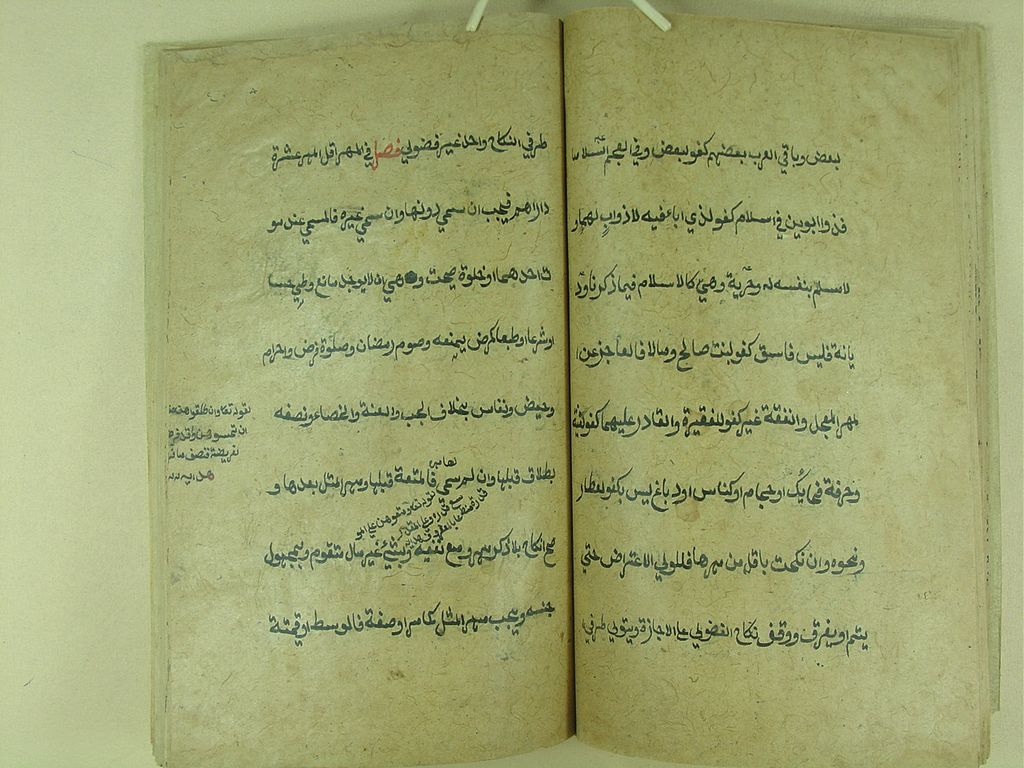 بعض وباقي العرب بعضهم كفو لبعض وفي العجم اسلاما
فذو ابوين في اسلام كفو لذي اباء فيه لا ذو اب لهما ر
لا مسلم بنفسه له وحرية وهي كالاسلام فيما ذكرنا ود
يانة فليس فاسق كفو لبنت صالح ومالا فالعاجز عن ا
لمهر المعجل والنفقة غير كفو للفقيرة والقادر عليهما كفو لغنية
وحرفة فحايك او حجام او كناس او دباغ ليس بكفو لعطار
ونحوه وان نكحت باقل من مهرها فللولي الاعتراض حتي
يتم او يفرق ووقف نكاح الفضولي علي الاجازة ويتولي طرفي
طرفي النكاح واحد غير فضولي فصل في المهر اقل المهر عشرة
دراهم فيجب ان سمي دونها وان سمي غيره فالمسمي عند مو
ت احدهما او خلوة صحت وهي ان لا يوجد مانع وطي حسا
او شرعا او طبعا كمرض يمنعه وصوم رمضان وصلوة فرض واحرام
وحيض ونفاس بخلاف الجب والعنة والخصاء ونصفه
بطلاق قبلها وان لم يسمي فالمتعة قبلها ومهر المثل بعدها و
صح النكاح بلا ذكر مهر ومع نفيه وبشيء غير مال متقوم وبمجهول
جنسه ويجب مهر المثل كما مر او صفة فالوسط او قيمته
لقوله تعالي وان طلقتموهن من قبل
ان تمسوهن وقد فرضتم
فريضة فنصف ما فر